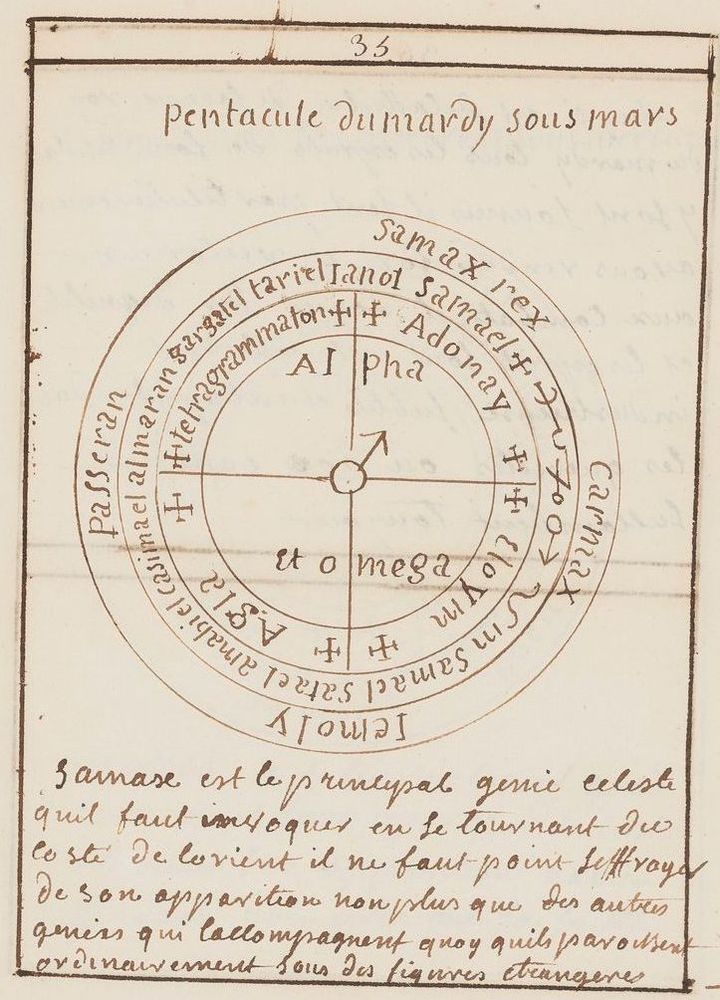 35
pentacule du mardy sous mars
Samax rex
Carmax
Iemoly
Passeran
tariel Ianol Samael ✠
Samael Satael amabiel Casimael almaran gargatel
✠ Adonay ✠
✠ eloym ✠
✠ Agla ✠
✠ tetragrammaton ✠
Alpha
et omega
Samase est le principal genie celeste
quil faut invoquer en se tournant du
costé de lorient il ne faut point seffrayer
de son apparition non plus que des autres
genies qui laccompagnent quoy quils paroissent
ordinairement sous des figures etrangeres